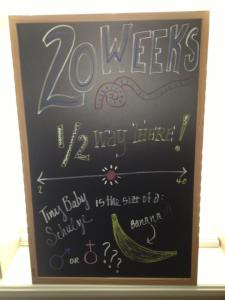 20 WEEKS
1/2 way there!
2 40
Tiny Baby is the size of a:
Schulze BANANA
♂ OR ♀ ???